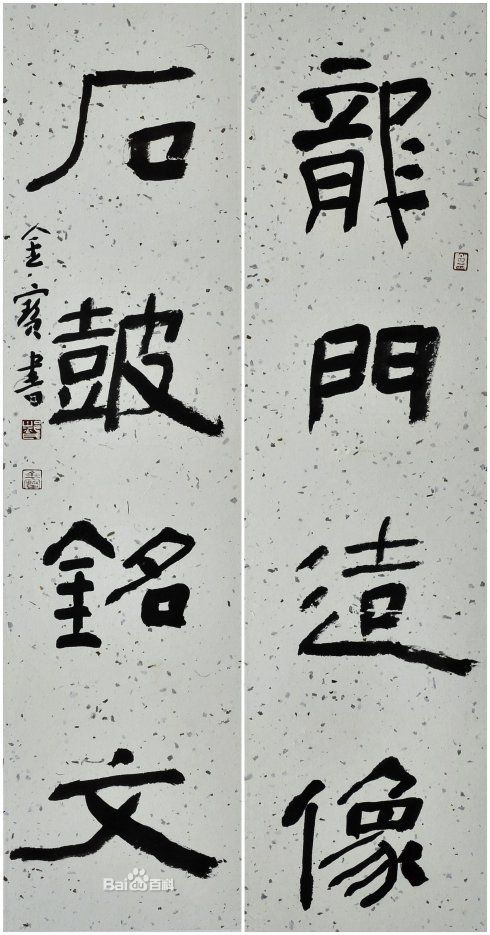 龍門造像
石鼓銘文
金寶書
Bai百科